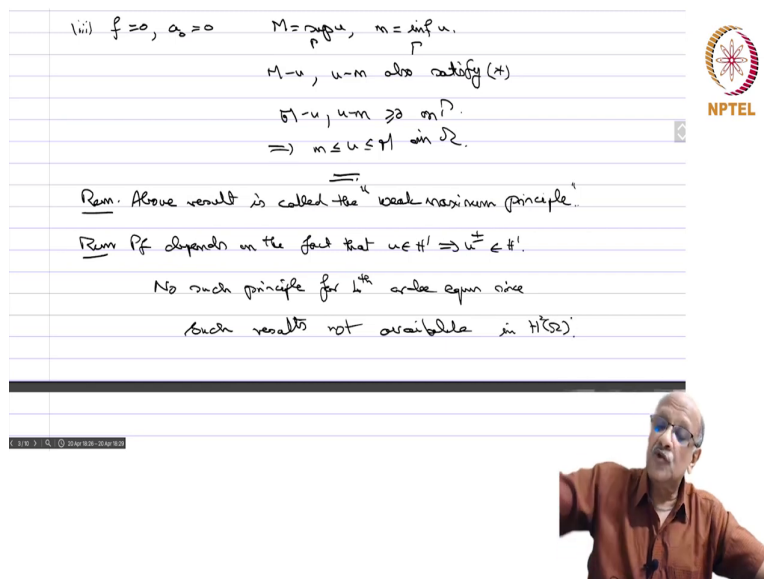 (iii) f=0, a₀=0 M = sup u, m = inf u.
Γ Γ
M-u, u-m also satisfy (*)
M-u, u-m ≥0 on Γ.
⇒ m ≤ u ≤ M in Ω.
Rem. Above result is called the "weak maximum principle".
Rem Pf depends on the fact that u∈H¹ ⇒ u^± ∈ H¹.
No such principle for 4th order equn since
such results not available in H²(Ω).
NPTEL
3/10 20 Apr 18:26 - 20 Apr 18:29